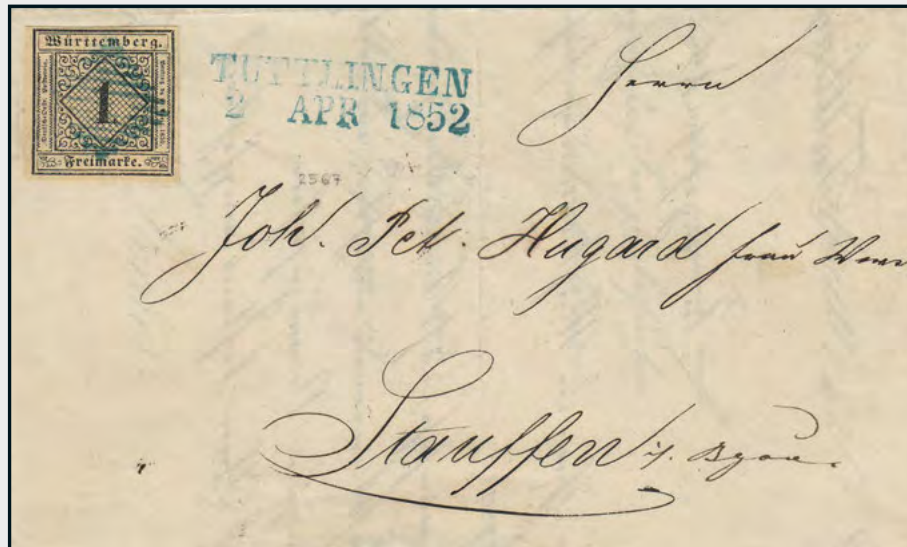 Württemberg.
1
Freimarke.
TUTTLINGEN
2 APR 1852
2567
Herrn
Joh. Pet. Hugard
Stauffen